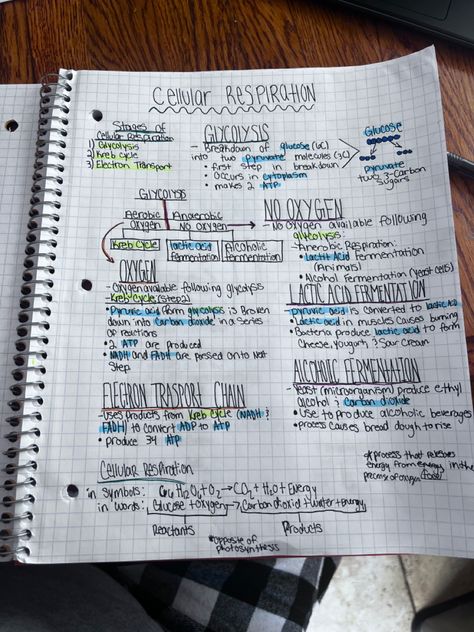 CELLULAR RESPIRATION
Stages of
Cellular Respiration
1) Glycolysis
2) Kreb cycle
3) Electron Transport
GLYCOLYSIS
- Breakdown of glucose (6C)
into two pyruvate molecules (3C)
• first step in breakdown
• Occurs in cytoplasm
• makes 2 ATP
Glucose
pyruvate
two 3-Carbon
sugars
GLYCOLYSIS
Aerobic
Oxygen
Anaerobic
NO Oxygen
Kreb Cycle
lactic acid
fermentation
Alcoholic
fermentation
OXYGEN
- Oxygen available following glycolysis
- Kreb cycle (step 2)
• Pyruvic acid form glycolysis is Broken
down into Carbon dioxide in a series
of reactions
• 2 ATP are produced
• NADH and FADH are passed on to next
step
NO OXYGEN
- No oxygen available following
glycolysis:
- Anaerobic Respiration:
• Lactic Acid fermentation
(Animals)
• Alcohol Fermentation (yeast cells)
LACTIC ACID FERMENTATION
- pyruvic acid is converted to lactic acid
• Lactic acid in muscles causes burning
• Bacteria produce lactic acid to form
cheese, yougart, & sour cream
ELECTRON TRASPORT CHAIN
- uses products from Kreb cycle (NADH &
FADH) to convert ADP to ATP
• produce 34 ATP
ALCOHOLIC FERMENTATION
- yeast (microorganism) produce ethyl
alcohol & carbon dioxide
• use to produce alcoholic beverages
• process causes bread dough to rise
*process that releases
energy from energy in the
precense of oxygen food
Cellular Respiration
in symbols: C6 H12 O6 + O2 → CO2 + H2O + Energy
in words: Glucose + oxygen → Carbon dioxid + water + energy
Reactants
Products
*opposite of
photosynthesis